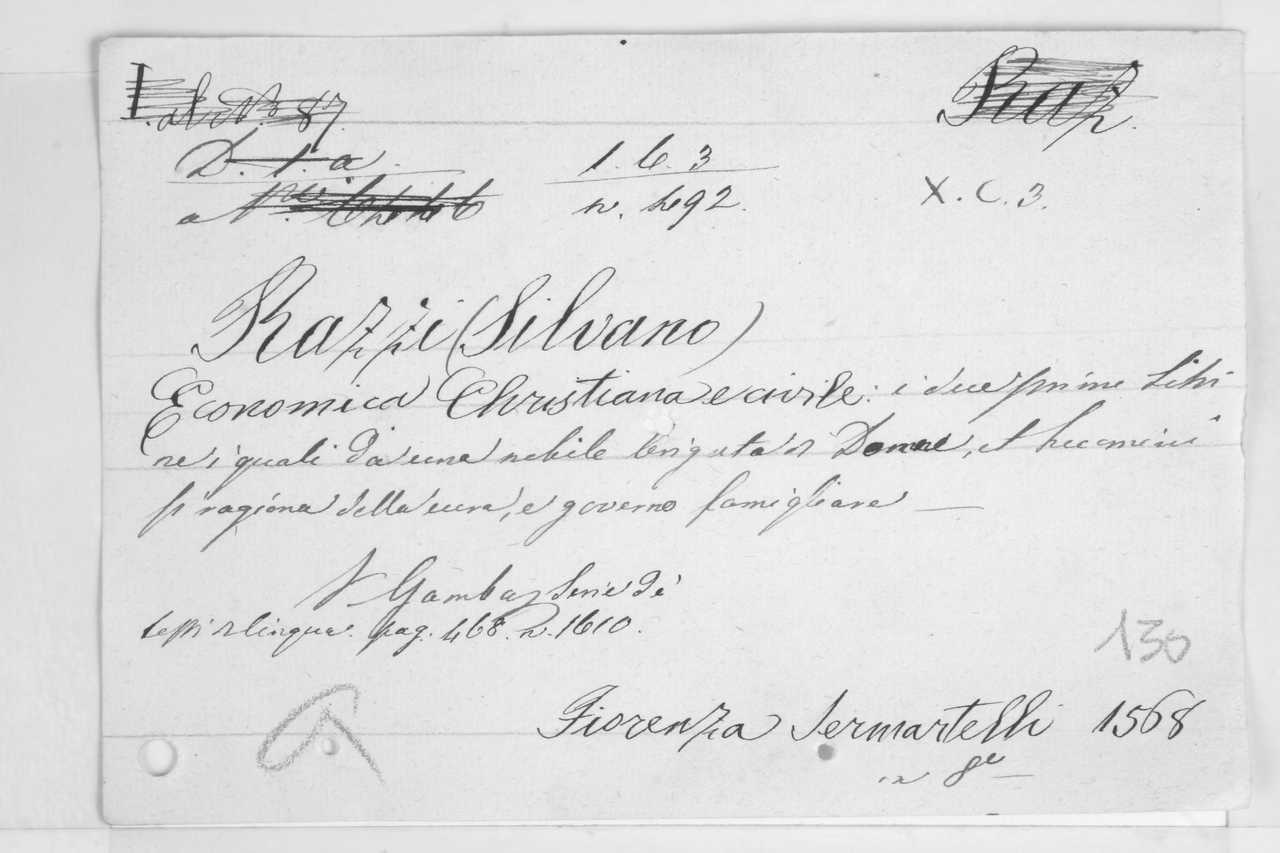 87
Raz.
D. 1. a.
1. C. 3
n. 492.
X. C. 3.
Razzi (Silvano)
Economica Christiana e civile: i due primi Libri
ne i quali da una nobile brigata di Donne, et huomini
si ragiona della cura, e governo famigliare —
V Gamba, Serie dei
testi di lingua. pag. 468. n. 1610.
130
Fiorenza Sermartelli 1568
in 8º